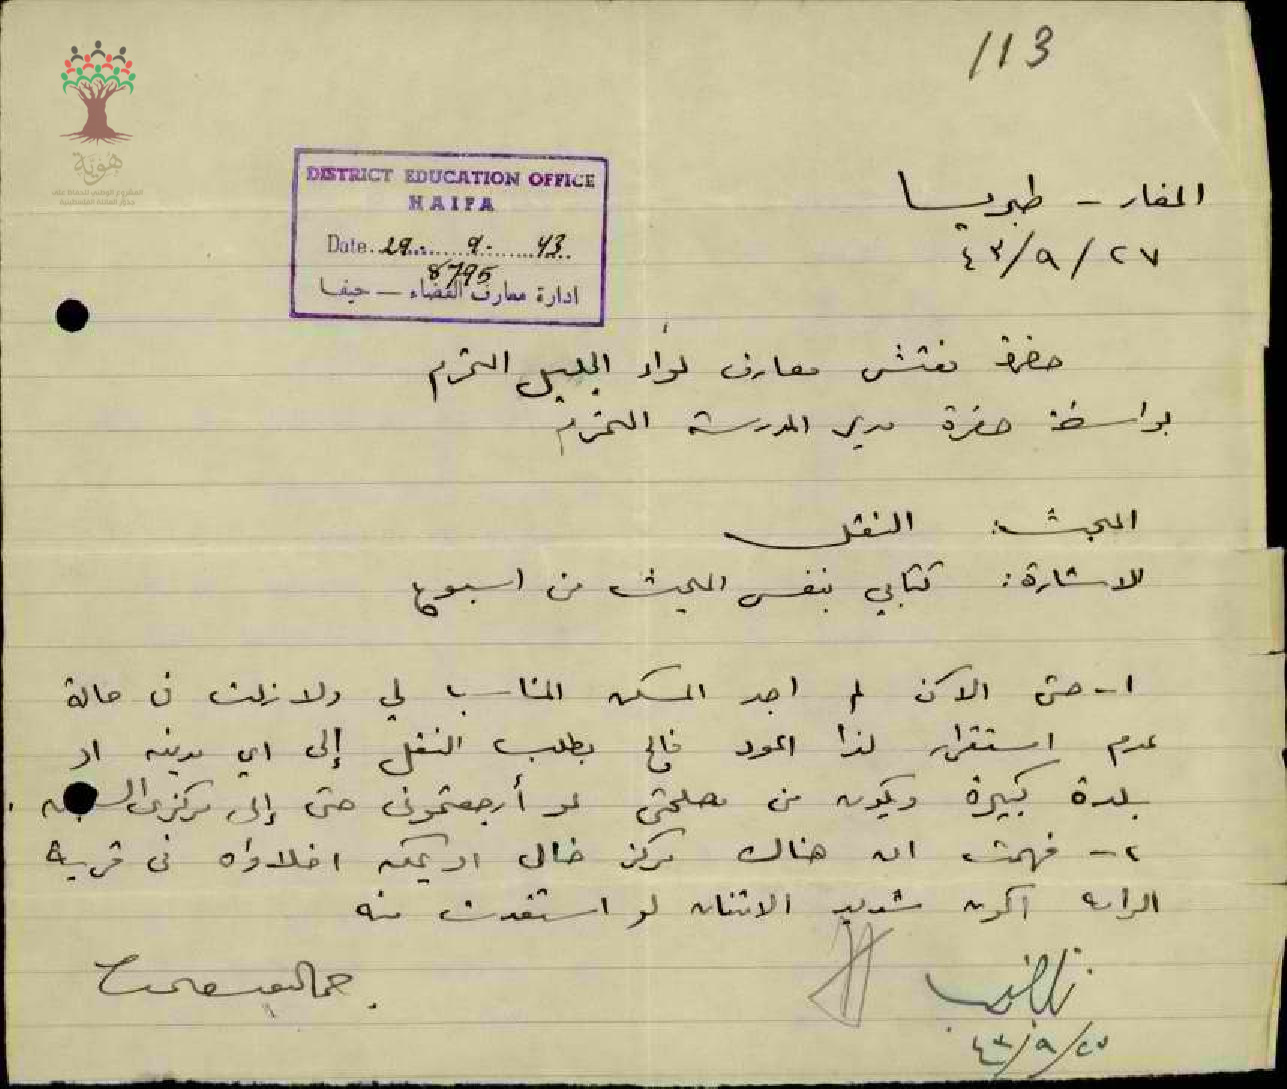 113
هوية
المشروع الوطني للحفاظ على
جذور العائلة الفلسطينية
DISTRICT EDUCATION OFFICE
HAIFA
Date. 29. 9. 43
8795
ادارة معارف القضاء — حيفا
المغار - طبريا
٤٣/٩/٢٧
حضرة مفتش معارف لواء الجليل المحترم
بواسطة حضرة مدير المدرسة المحترم
المبحث: النقل
للاشارة: كتابي بنفس المبحث من اسبوع
١- حتى الآن لم اجد المسكن المناسب لي ولا زلت في حالة
عدم استقرار لذا اعود بطلب النقل إلى اي مدينه او
بلدة كبيرة ويكون من مصلحتي لو أرجعتموني حتى إلى مركزي
٢- فهمت ان هناك مركز خالي او يمكن اخلاؤه في قرية
الرامه اكون شديد الامتنان لو استفدت منه
٤٣/٩/٢٧